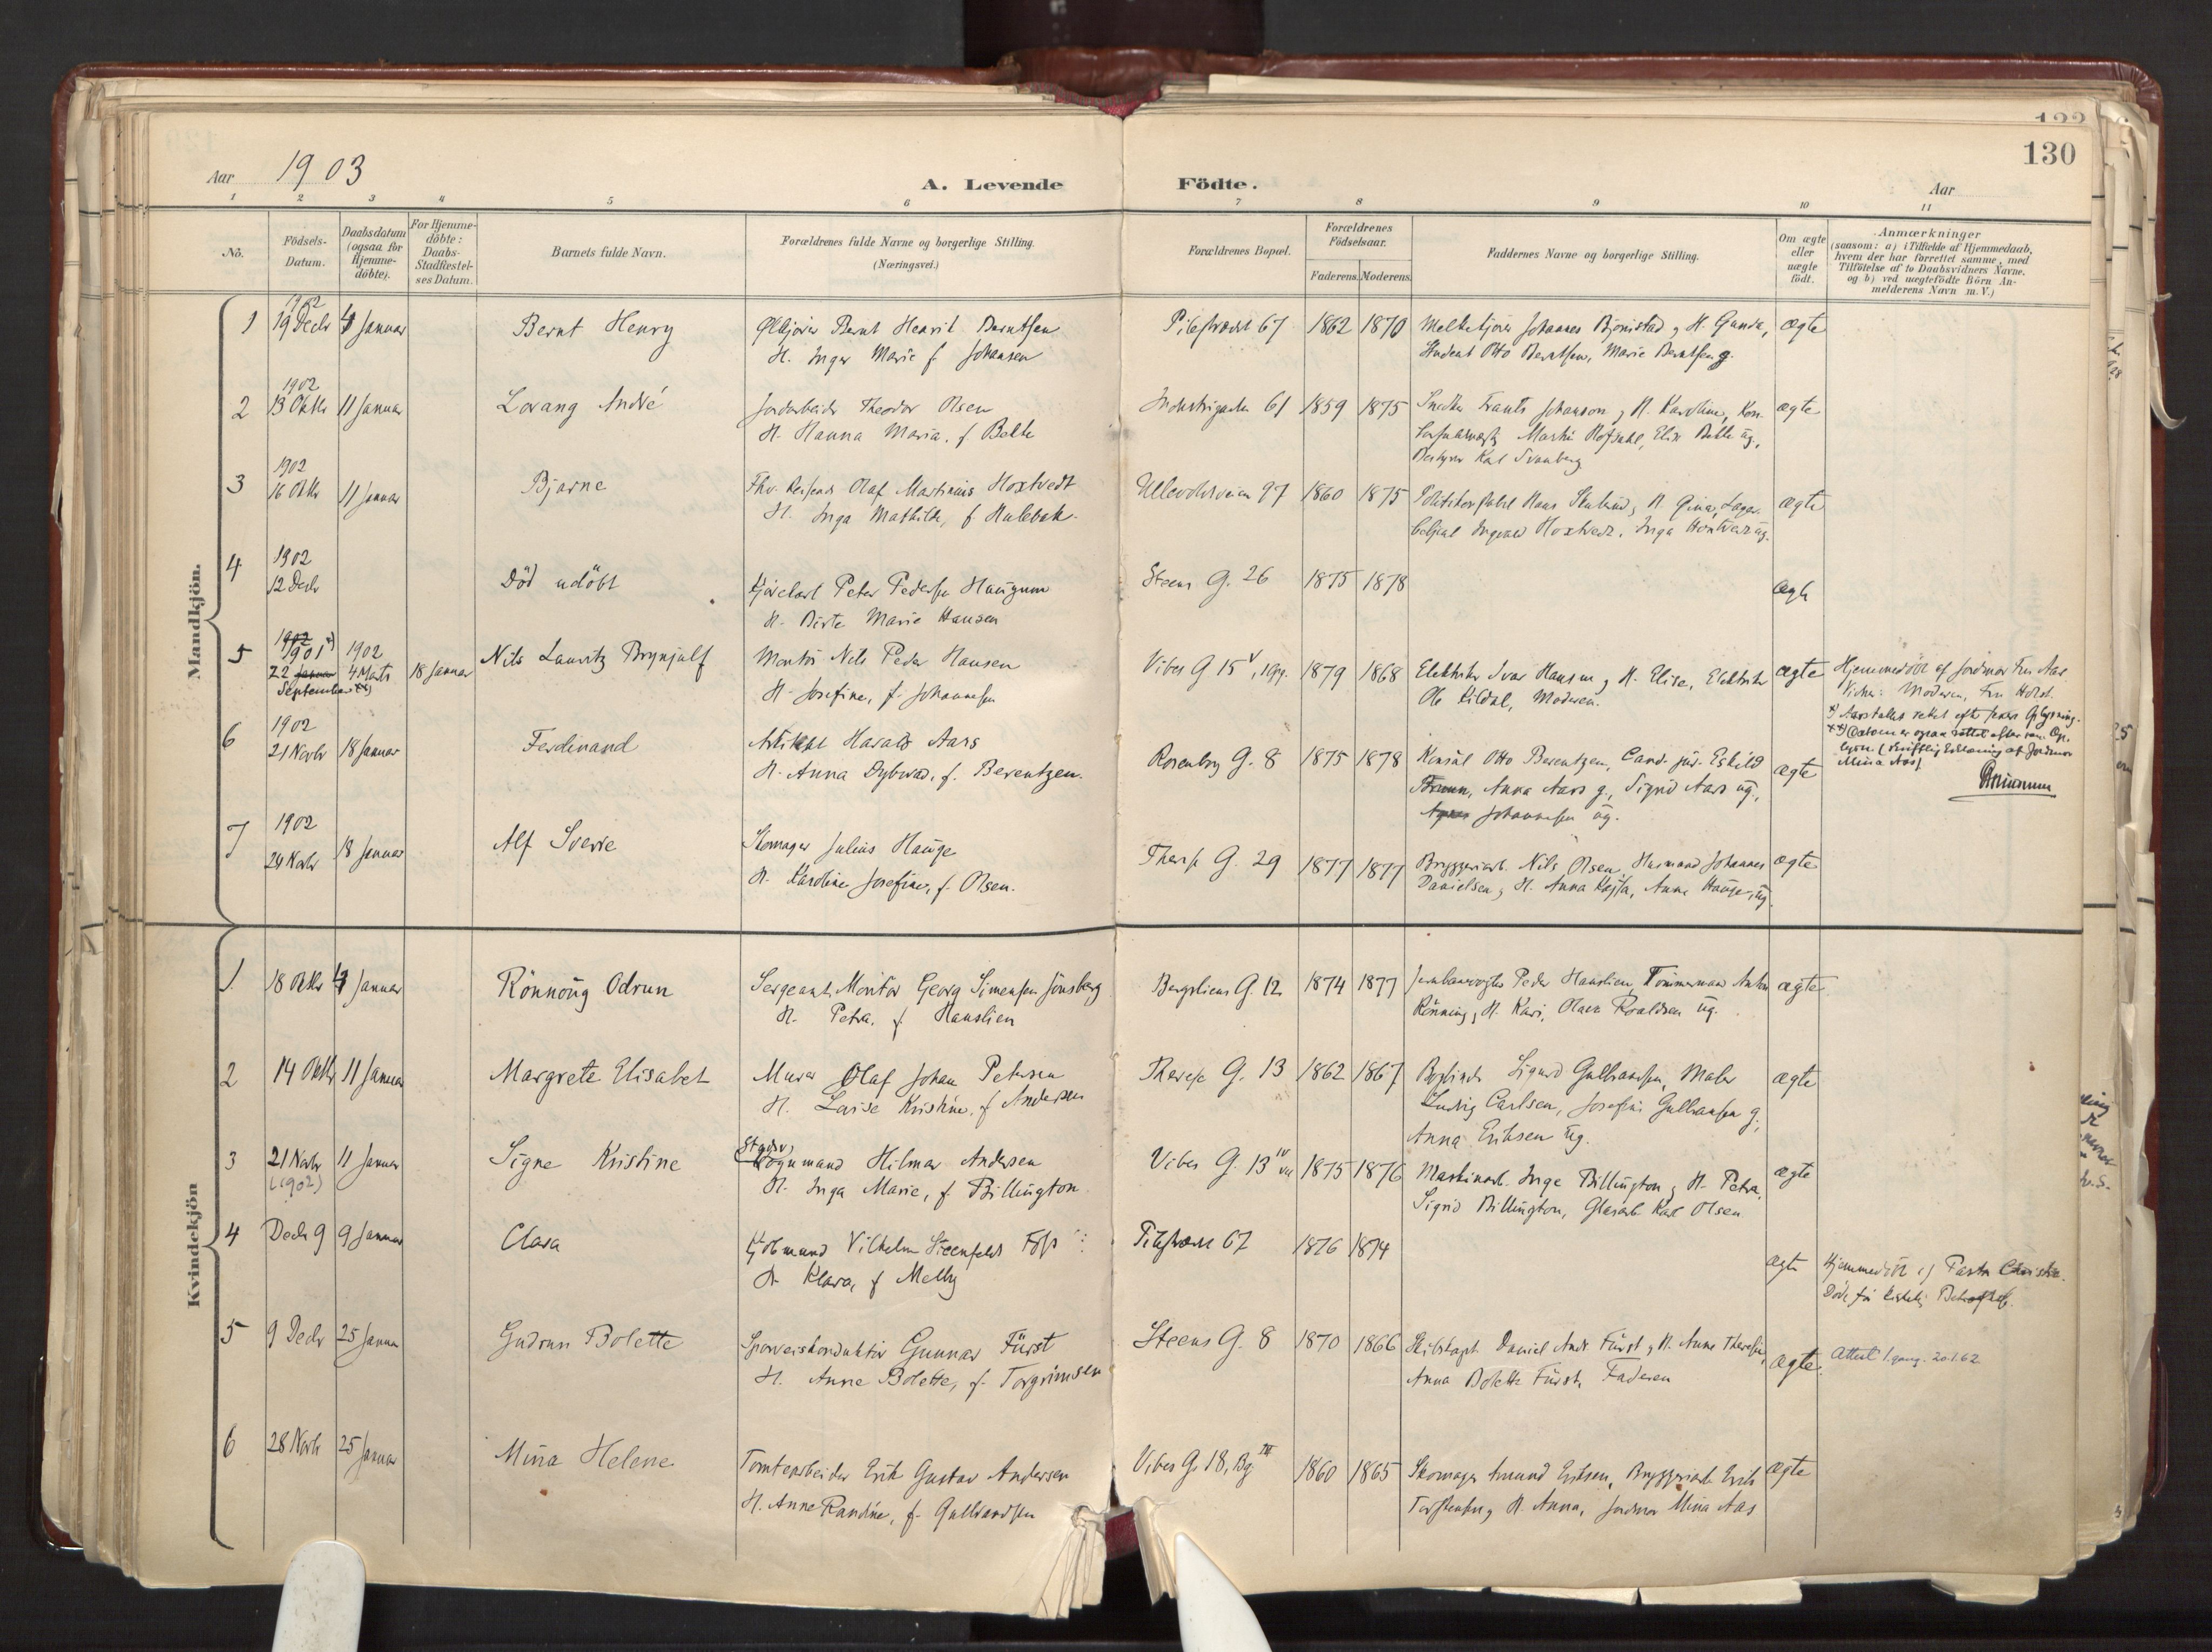 122
130
Aar 1903
A. Levende Födte.
Aar
1 2 3 4 5 6 7 8 9 10 11
No.
Födsels-Datum.
Daabsdatum (ogsaa for Hjemme-döbte).
For Hjemme-döbte: Daabs-Stadfæstel-ses Datum.
Barnets fulde Navn.
Forældrenes fulde Navne og borgerlige Stilling.
(Næringsvei.)
Forældrenes Bopæl.
Forældrenes Födselsaar.
Faderens. Moderens.
Faddernes Navne og borgerlige Stilling.
Om ægte eller uægte födt.
Anmærkninger
(saasom: a) i Tilfælde af Hjemmedaab,
hvem der har forrettet samme, med
Tilföielse af to Daabsvidners Navne,
og b) ved uægtefödte Börn An-
melderens Navn m. V.)
Mandkjön.
1902
1 19 Decbr 4 Januar Bernt Henry Ølkjører Bernt Henrik Berntsen Pilestrædet 67 1862 1870 Melkekjører Johannes Bjørnstad, H. Gunda, ægte
H. Inger Marie f Johansen Student Otto Berntsen, Marie Berntsen g.
1902
2 13 Oktbr 11 Januar Lorang André Jordarbeider Theodor Olsen Industrigaden 61 1859 1875 Snedker Frants Johanson, H. Karoline, ægte
H. Hanna Maria, f. Belte
Bestyrer Karl Svanberg
1902
3 16 Oktbr 11 Januar Bjarne Olaf Martinius Hoxtvedt Ullevoldsveien 97 1860 1875 H. Gina, Lager- ægte
H. Inga Mathilde, f. Hulebak. betjent Ingvald Hoxtvedt, Inga Hoxtvedt ug.
1902
4 12 Decbr Död udöbt Kjørekarl Peter Pedersen Haugum Steens G. 26 1875 1878 ægte
H. Birte Marie Hansen
1902
1901 x) 1902
5 22 Januar 4 Marts 18 Januar Nils Lauritz Brynjulf Montör Nils Peder Hansen Vibes G 15 V, opg. 1879 1868 Elektriker Ivar Hansen, H. Elise, Elektriker ægte
September xx) H. Josefine, f. Johannesen Ole Kildal, Moderen.
Hjemmedöbt af Jordmor Fru Aas
Vidner: Moderen, Fru Holst.
x) Aarstallet rettet efter senere Oplysning.
xx) Datoen er ogsaa rettet efter sen. Op-
lysn. (skriftlig Erklæring af Jordmor
Mina Aas).
1902
6 21 Novbr 18 Januar Ferdinand Arkitekt Harald Aars Rosenborg G. 8 1875 1878 Konsul Otto Berentzen, Cand. jur. Eskild ægte
H. Anna Dybwad, f. Berentzen. Anna Aars g., Sigrid Aars ug.,
Agnes Johannesen ug.
1902
7 24 Novbr 18 Januar Alf Sverre Skomager Julius Hauge Therese G. 29 1877 1877 Bryggeriarb. Nils Olsen, Husmand Johannes ægte
H. Karoline Josefine, f. Olsen. Danielsen, H. Anna Kajsa, Anna Hauge, ug.
Kvindekjön
1 18 Oktbr 4 Januar Rönnoug Odrun Sergeant, Montör Georg Simensen Jönsberg Bergsliens G. 12 1874 1877 Jernbanevogter Peder Hauslien, Tömmermand Anton ægte
H. Petra, f. Hauslien Rönning, H. Kari, Olava Roaldsen ug.
2 14 Oktbr 11 Januar Margrete Elisabet Murer Olaf Johan Petersen Therese G. 13 1862 1867 Bogbinder Sigurd Gulbrandsen, Maler ægte
H. Lovise Kristine, f Andersen Ludvig Carlsen, Josefine Gulbransen g,
Anna Eriksen ug.
3 21 Novbr 11 Januar Signe Kristine Vognmand Hilmar Andersen Vibes G. 13 IV 1875 1876 Maskinarb. Inge Billington, H. Petra, ægte
(1902) H. Inga Marie, f. Billington Sigrid Billington, Glasarb Karl Olsen
4 Decbr 9 9 Januar Clara Kjöbmand Vilhelm Steenfeldt Foss Pilestrædet 67 1876 1874 ægte Hjemmedöbt af Pastor Christie.
H. Klara, f Melby Död før kirkelig Bekræftelse.
5 9 Decbr 25 Januar Gudrun Bolette Sporveiskonduktør Gunnar Fürst Steens G. 8 1870 1866 Skibskapt. Daniel Andr. Fürst, H. Anne Therese, ægte. Attest 1. gang. 20.1.62
H. Anne Bolette, f. Torgrimsen Anna Bolette Fürst, Faderen
6 28 Novbr 25 Januar Mina Helene Tomtearbeider Erik Gustav Andersen Vibes G. 18, Bg III 1860 1865 Skomager Amund Eriksen, Bryggeriarb Erik ægte
H. Anne Randine, f. Gulbrandsen Torstensen, H. Anna, Jordmor Mina Aas